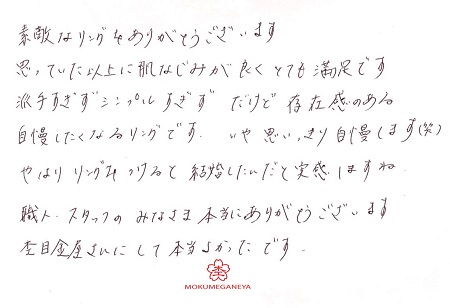 素敵なリングをありがとうございます
思っていた以上に肌なじみが良くとても満足です
派手すぎずシンプルすぎず だけど 存在感のある
自慢したくなるリングです. いや 思いっきり自慢します(笑)
やはり リングをつけると 結婚したんだと実感しますね
職人・スタッフの みなさま 本当にありがとうございます
杢目金屋さんにして本当よかったです.
MOKUMEGANEYA